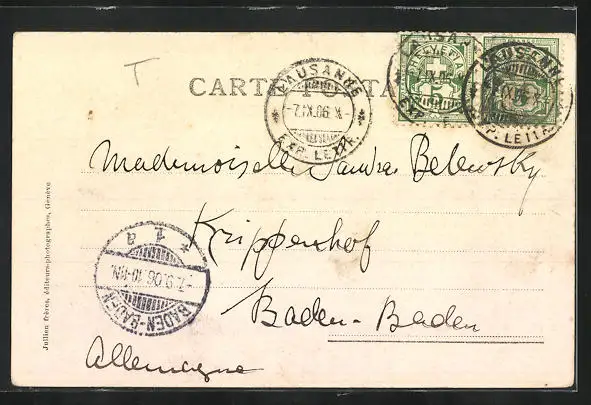 T
CARTE POSTA
LAUSANNE
-7.IX.06.X-
EXP. LETTR.
HELVETIA
5
LAUSANNE
IX.06
EXP. LETTR.
Mademoiselle Sandra Belewsky
Krippenhof
Baden-Baden
Allemagne
BADEN-BADEN
-7.9.06.10-11N.
* 1a
Jullien frères, éditeurs-photographes, Genève